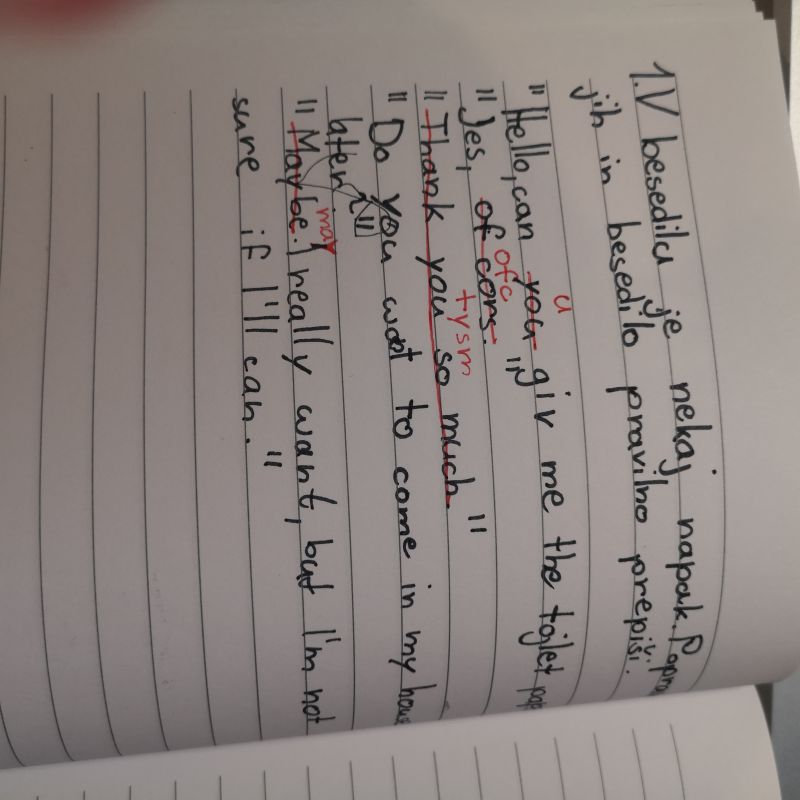 1. V besedilu je nekaj napak. Popra
jih in besedilo pravilno prepiši.
u
"Hello, can you giv me the tojlet pap
ofc
"Yes, of cors."
tysm
"Thank you so much."
"Do you want to come in my hous
later?"
may
"Maybe. I really want, but I'm not
sure if I'll can."